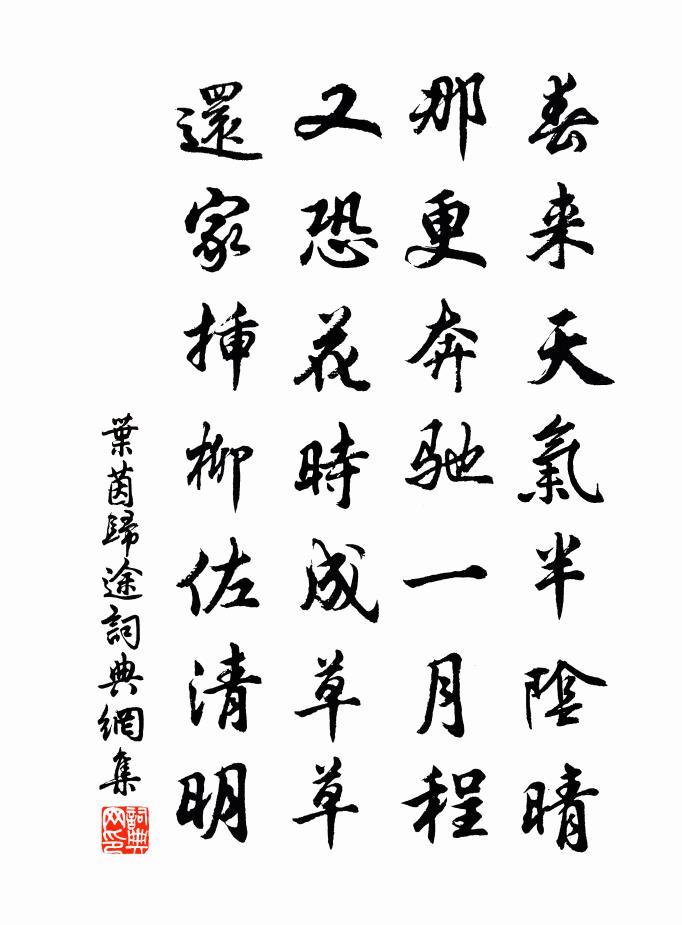 春来天氣半陰晴
那更奔馳一月程
又恐花時成草草
還家插柳佐清明
葉茵歸途詞典網集
詞典网印